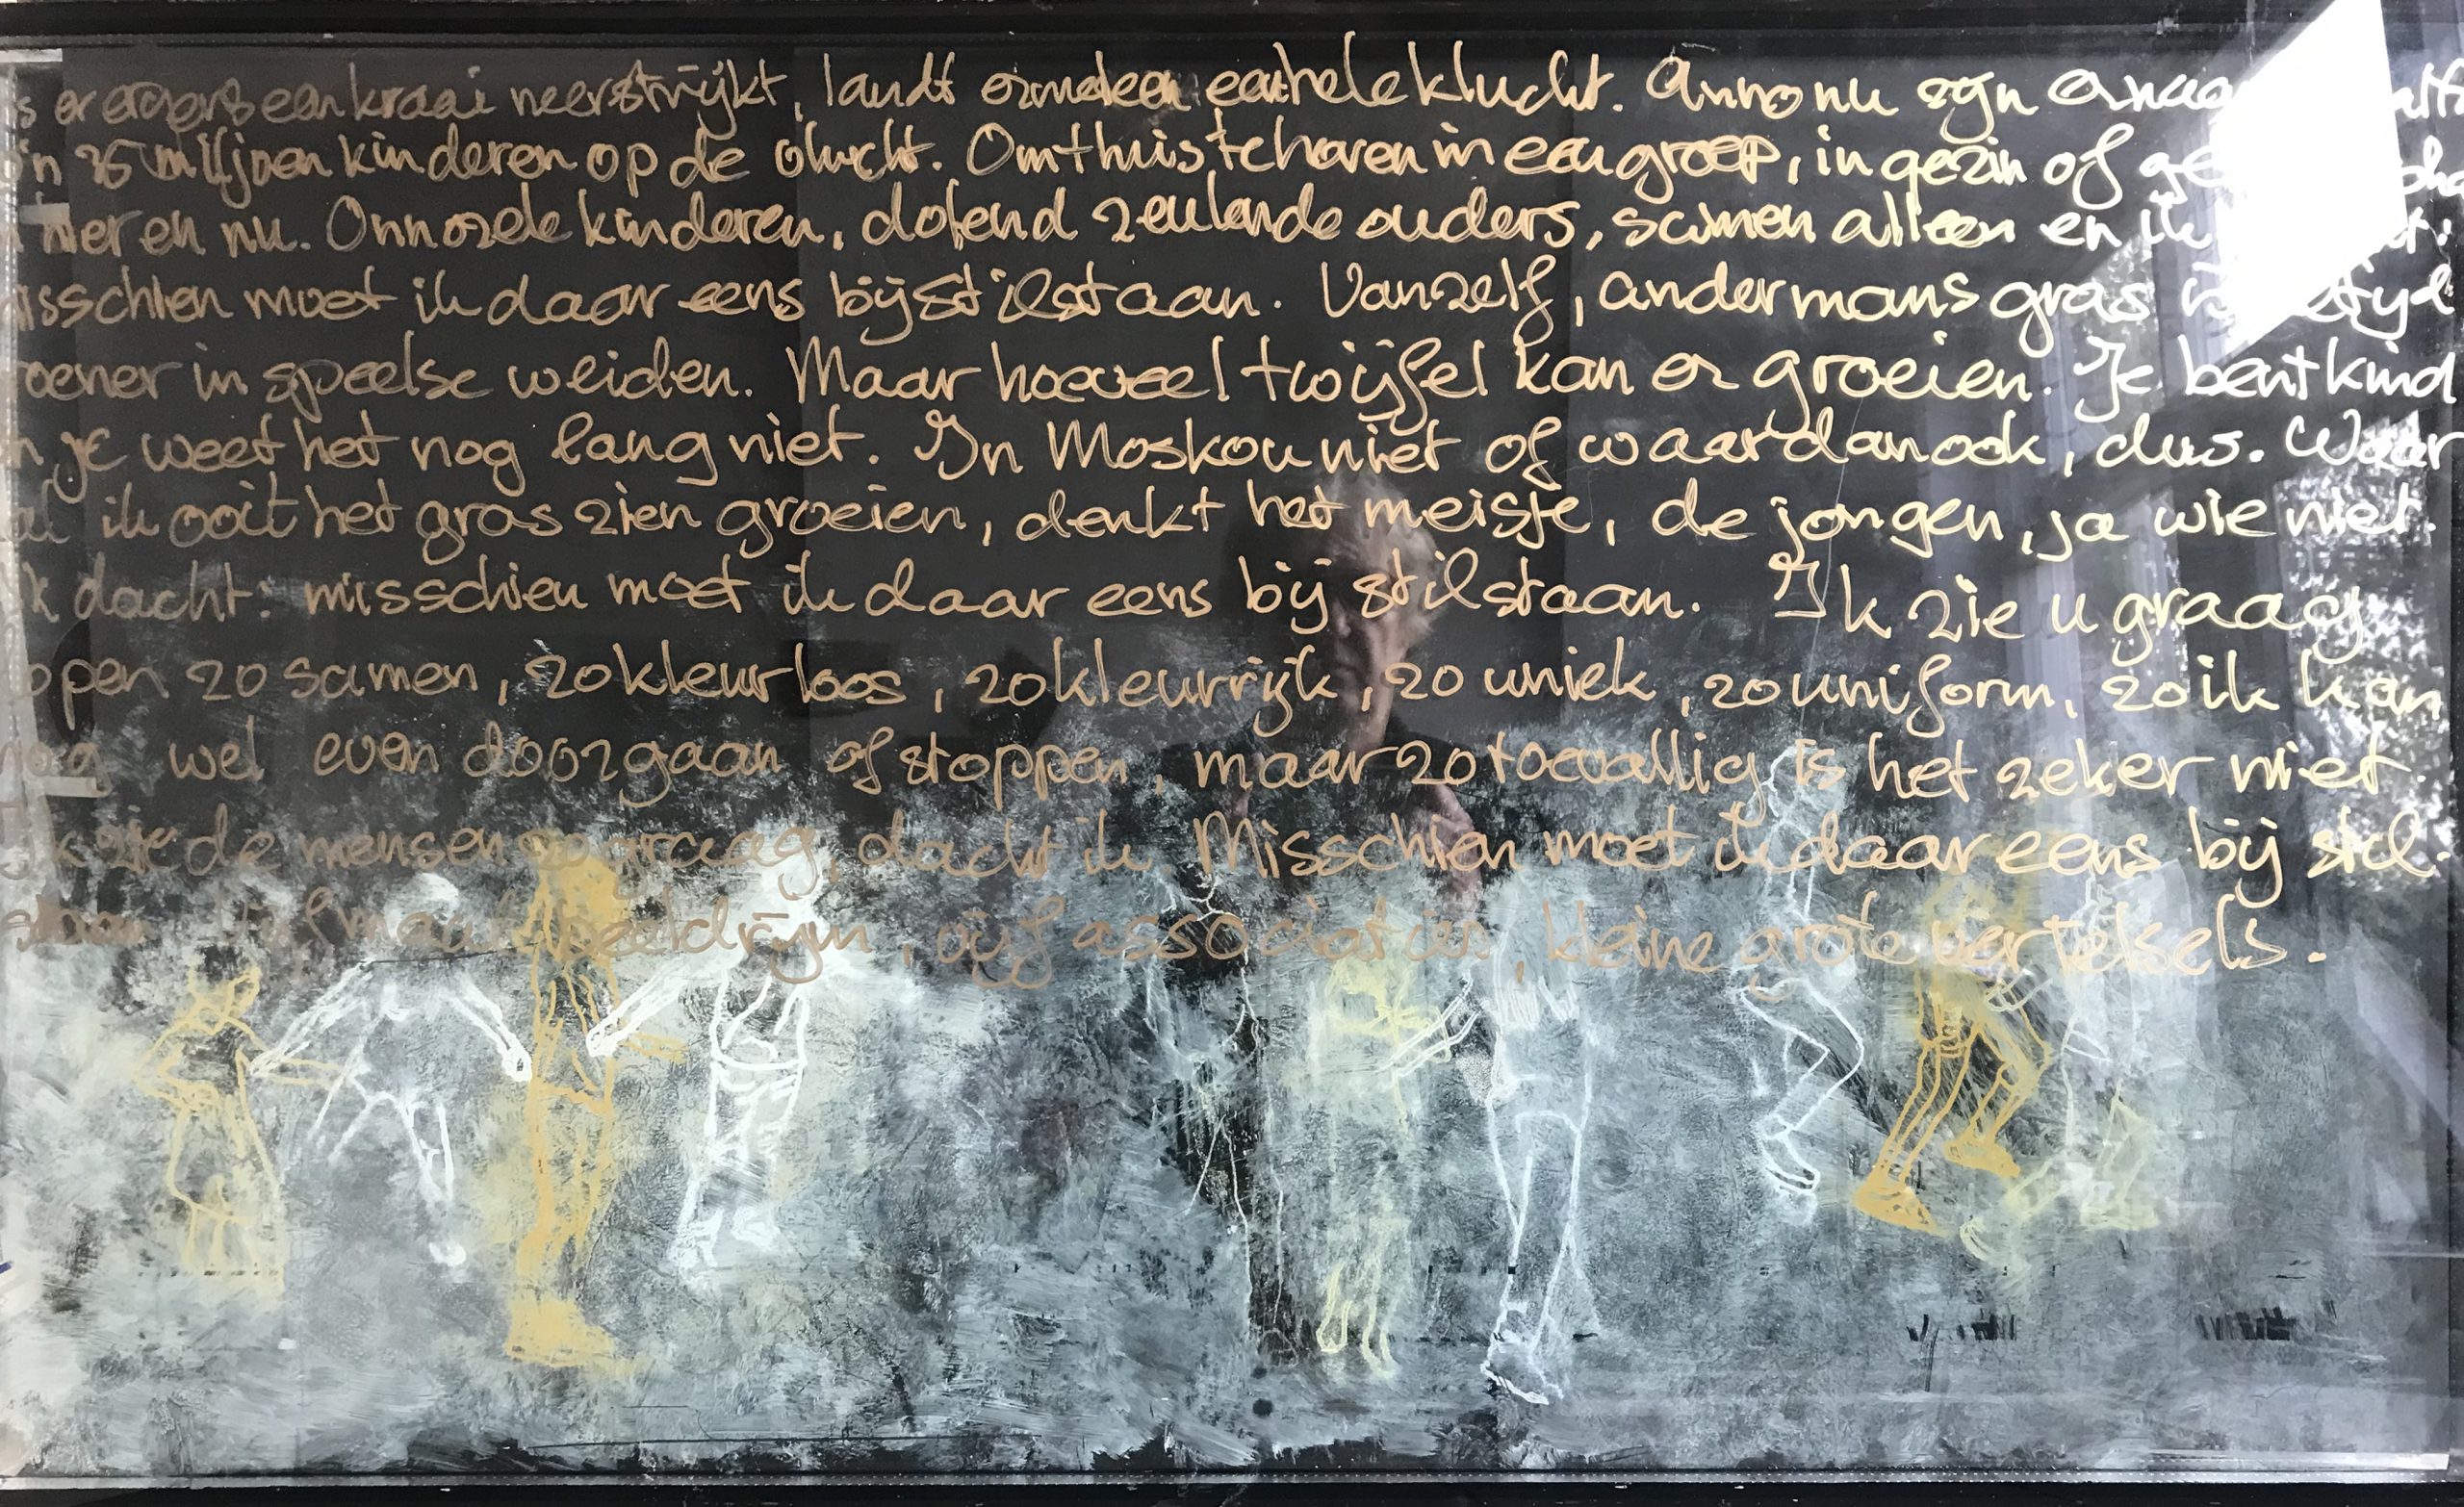 er ergens een kraai neerstrijkt, landt er meteen een hele klucht. Anno nu zijn
25 miljoen kinderen op de vlucht. Om thuis te horen in een groep, in gezin of
hier en nu. Onnozele kinderen, dolend zeulende ouders, samen alleen en ik
misschien moet ik daar eens bij stilstaan. Vanzelf, andermans gras
groener in speelse weiden. Maar hoeveel twijfel kan er groeien. Je bent kind
je weet het nog lang niet. In Moskou niet of waar dan ook, dus. Waar
ik ooit het gras zien groeien, denkt het meisje, de jongen, ja wie niet.
dacht: misschien moet ik daar eens bij stilstaan. Ik zie u graag
open zo samen, zo kleurloos, zo kleurrijk, zo uniek, zo uniform, zo ik kan
nog wel even doorgaan of stoppen, maar zo toevallig is het zeker niet.
Ik zie de mensen zo graag, dacht ik. Misschien moet ik daar eens bij stil-
staan beeldrijm, vijf associaties, kleine grote vertelsels.